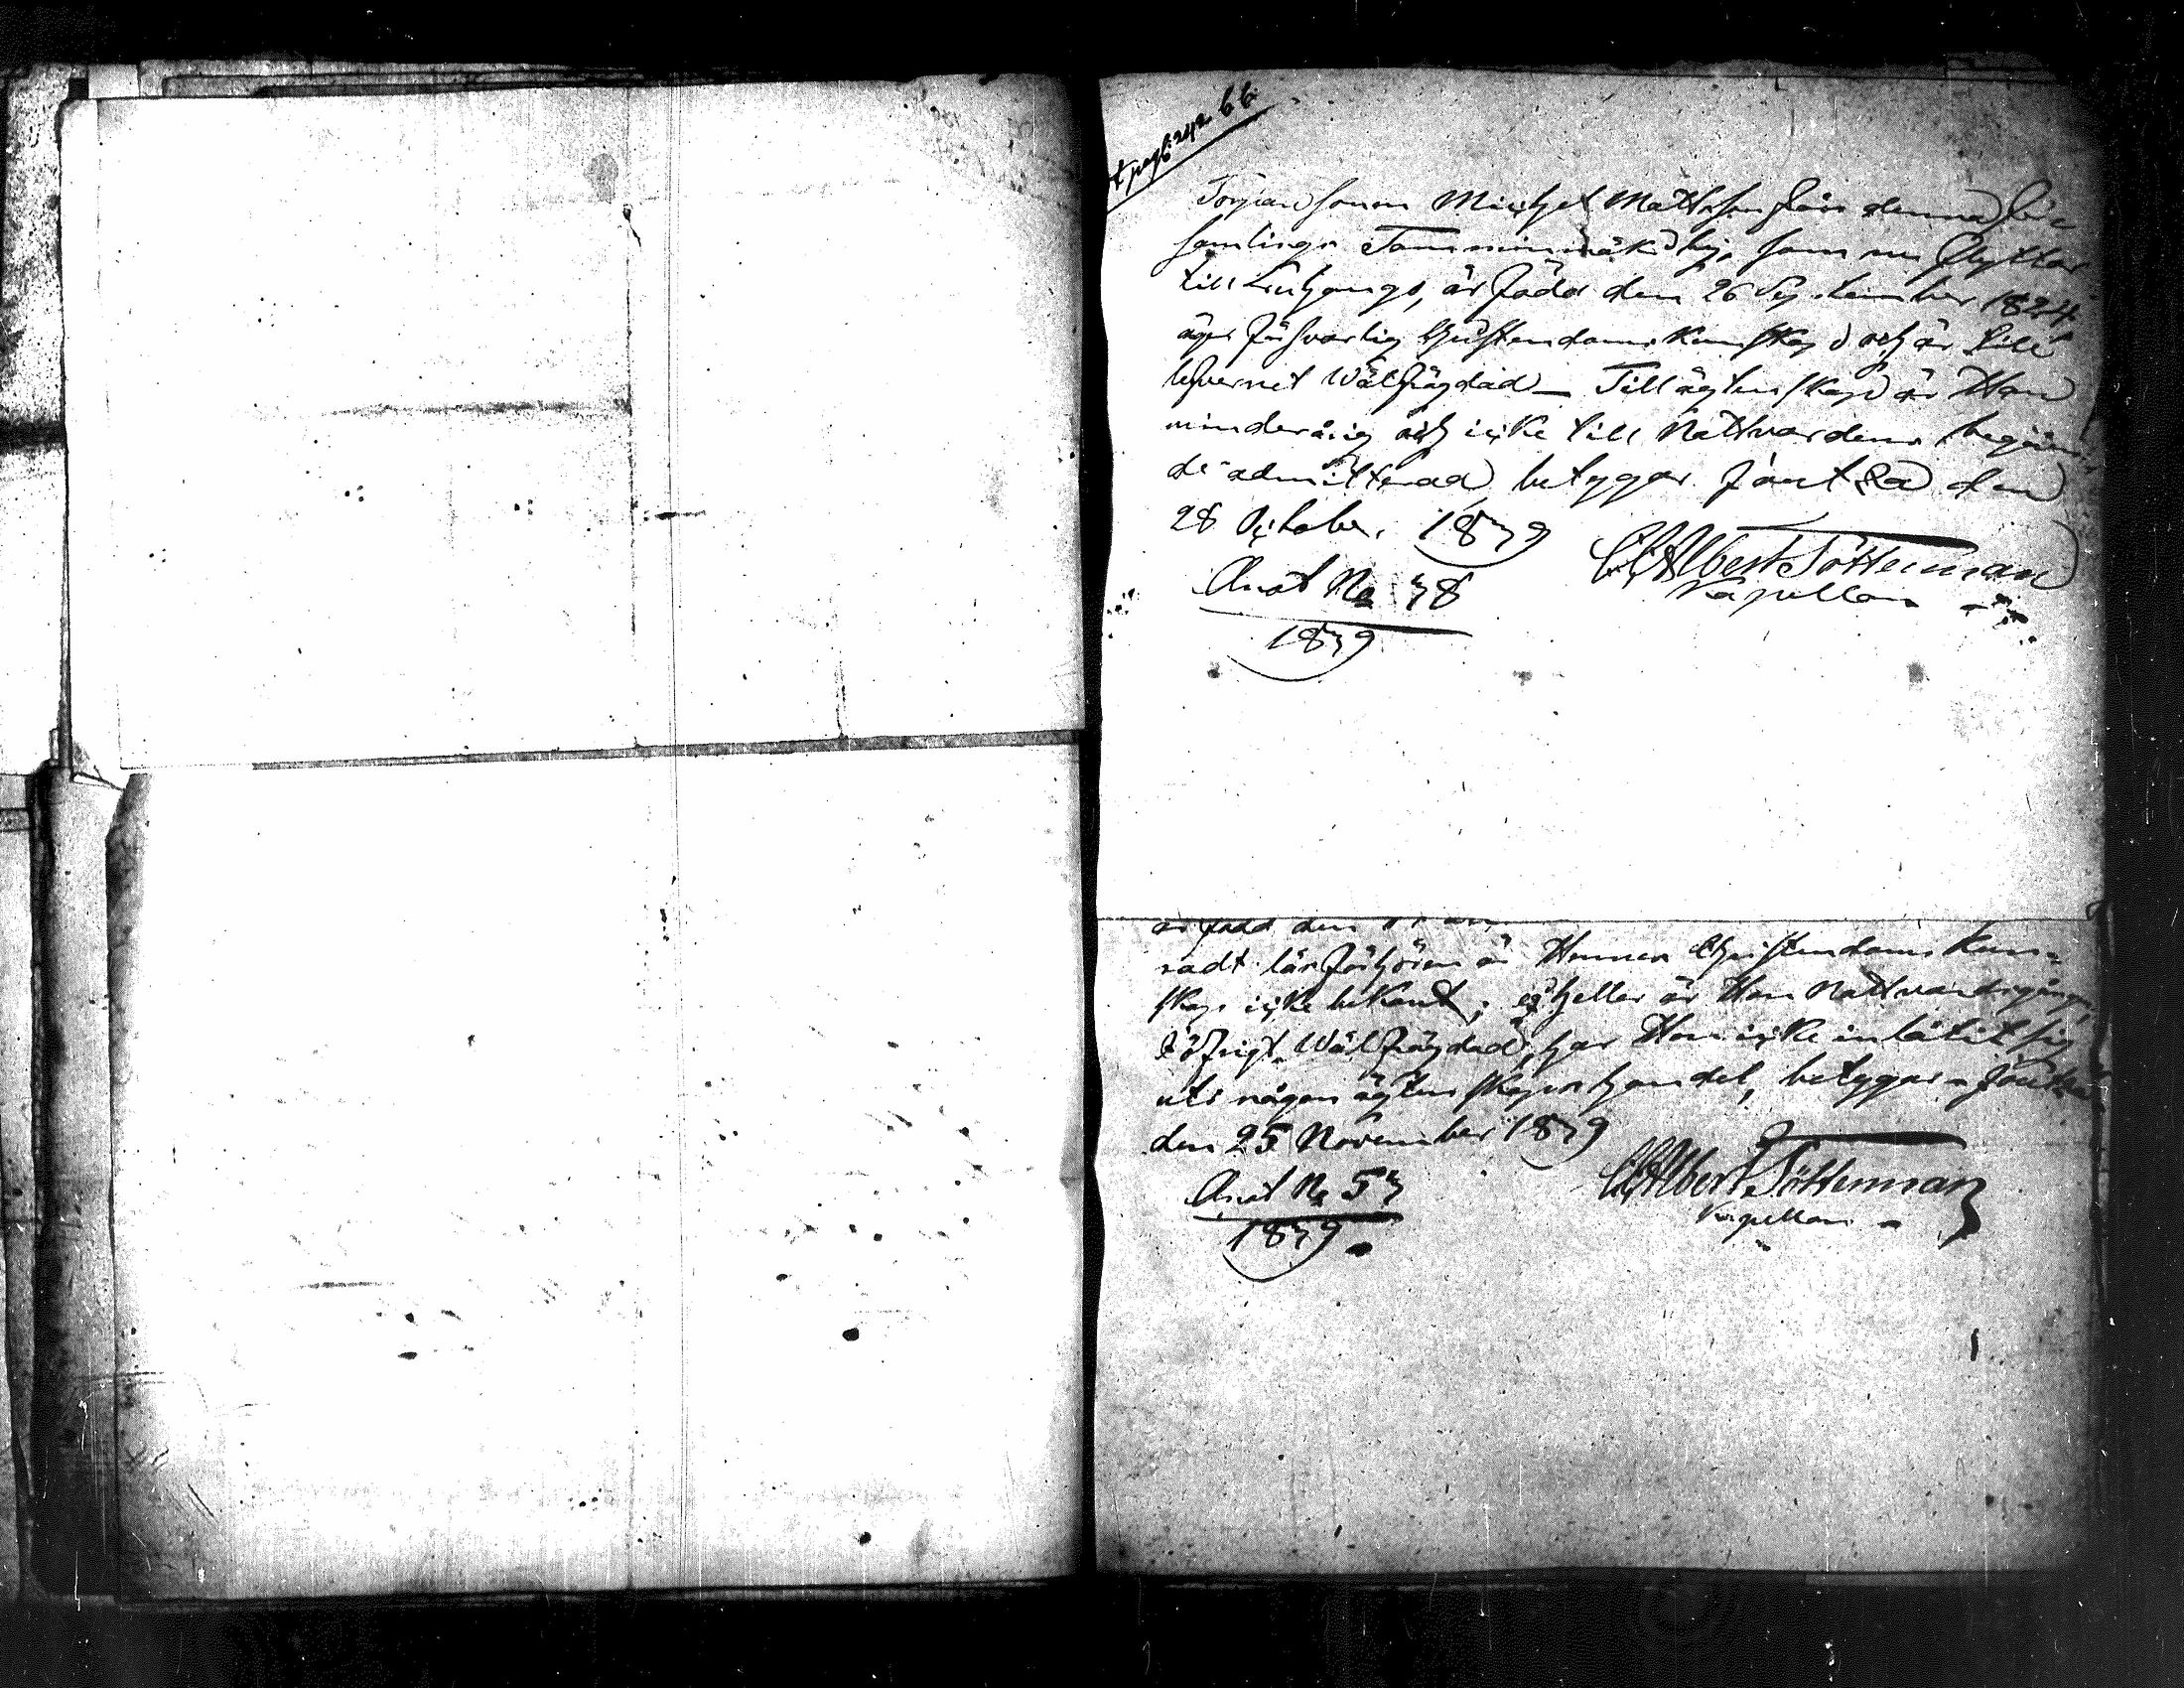 pag: 242 66
Torparesonen Michel Mattsson från denna För-
samlings Tomminmäki by, som nu flyttar
till Liuhanga, är född den 26 September 1824,
äger försvarlig Christendoms Kunskap och är till
lefvernet Wälfrägdad – Till ägtenskap är Han
minderårig och icke till Nattvardens begåen-
de admitterad, betygar Jämtsä den
28 October. 1839
C. Albert Tötterman
Kapellan
Anot No 38
1839
är född den
radt läsförhören är Hennes Christendoms Kun-
skap icke bekant; ej heller är Hon Nattvardsgången,
Töfrigt Wälfrägdad, har Hon icke inlåtit sig
uti någon ägtenskapshandel, betygar – Jämtsä
den 25 November 1839
C. Albert Tötterman
Kapellan
Anot No 53
1839